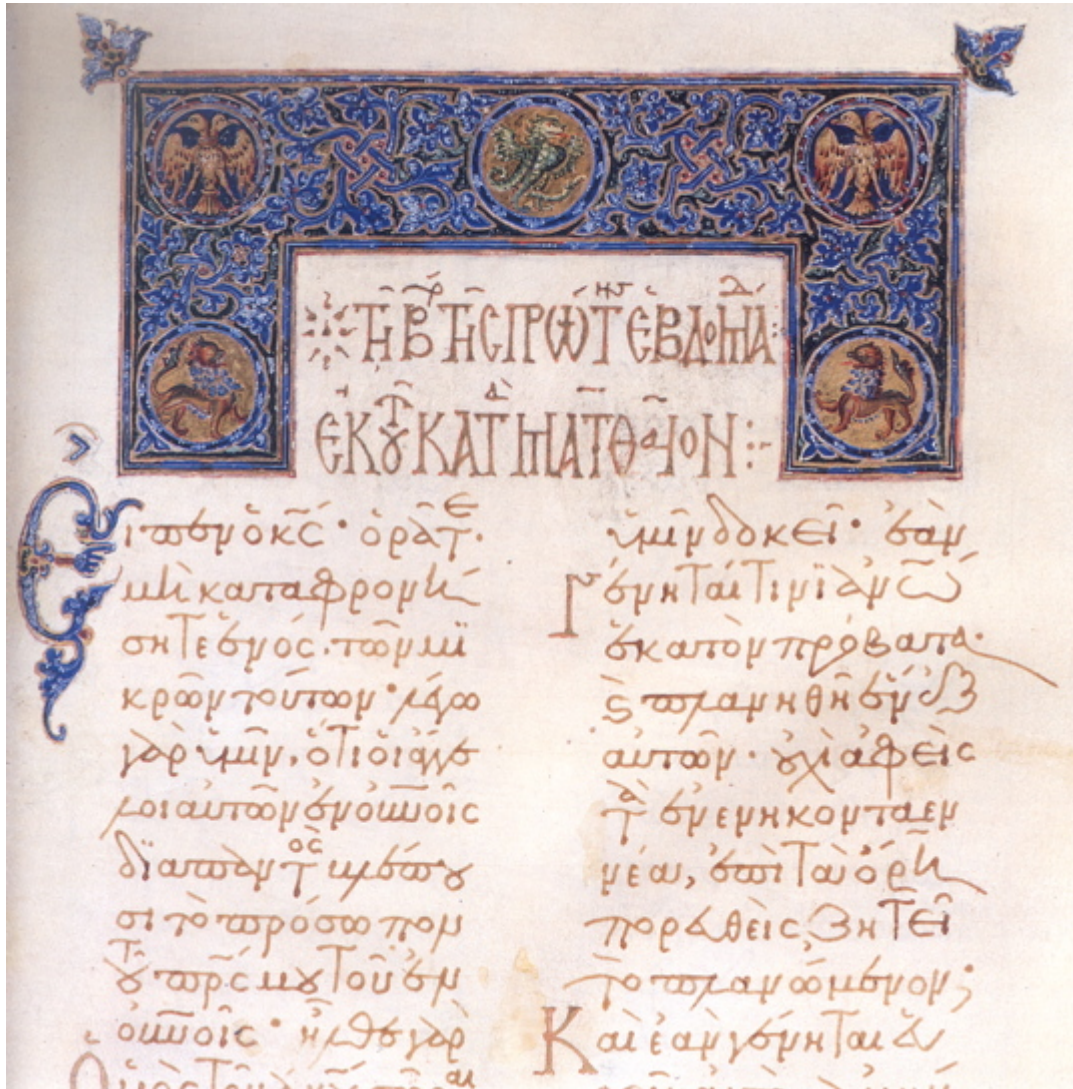 τῇ Β τῆς πρώτης ἑβδομάδ
ἐκ τοῦ κατὰ Ματθαῖον:
Εἶπεν ὁ κ̅ς̅· ὁρᾶτε·
μὴ καταφρονή
σητε ἑνὸς· τῶν μι
κρῶν τούτων· λέγω
γὰρ ὑμῖν, ὅτι οἱ ἄγγε
λοι αὐτῶν ἐν οὐ̅ν̅οις
διαπαντὸς βλέπου
σι τὸ πρόσωπον
τοῦ π̅ρ̅ς̅ μου τοῦ ἐν
οὐ̅ν̅οις· ἦλθε γὰρ
ὑμῖν δοκεῖ· ἐὰν
γένηται τινὶ ἀ̅ν̅ω̅
ἑκατὸν πρόβατα·
ϗ πλανηθῇ ἓν ἐξ
αὐτῶν· οὐχὶ ἀφεὶς
τὰ ἐνενηκονταεν
νέα, ἐπὶ τὰ ὄρη
πορευθεὶς, ζητεῖ
τὸ πλανώμενον;
Καὶ ἐὰν γένηται εὑ